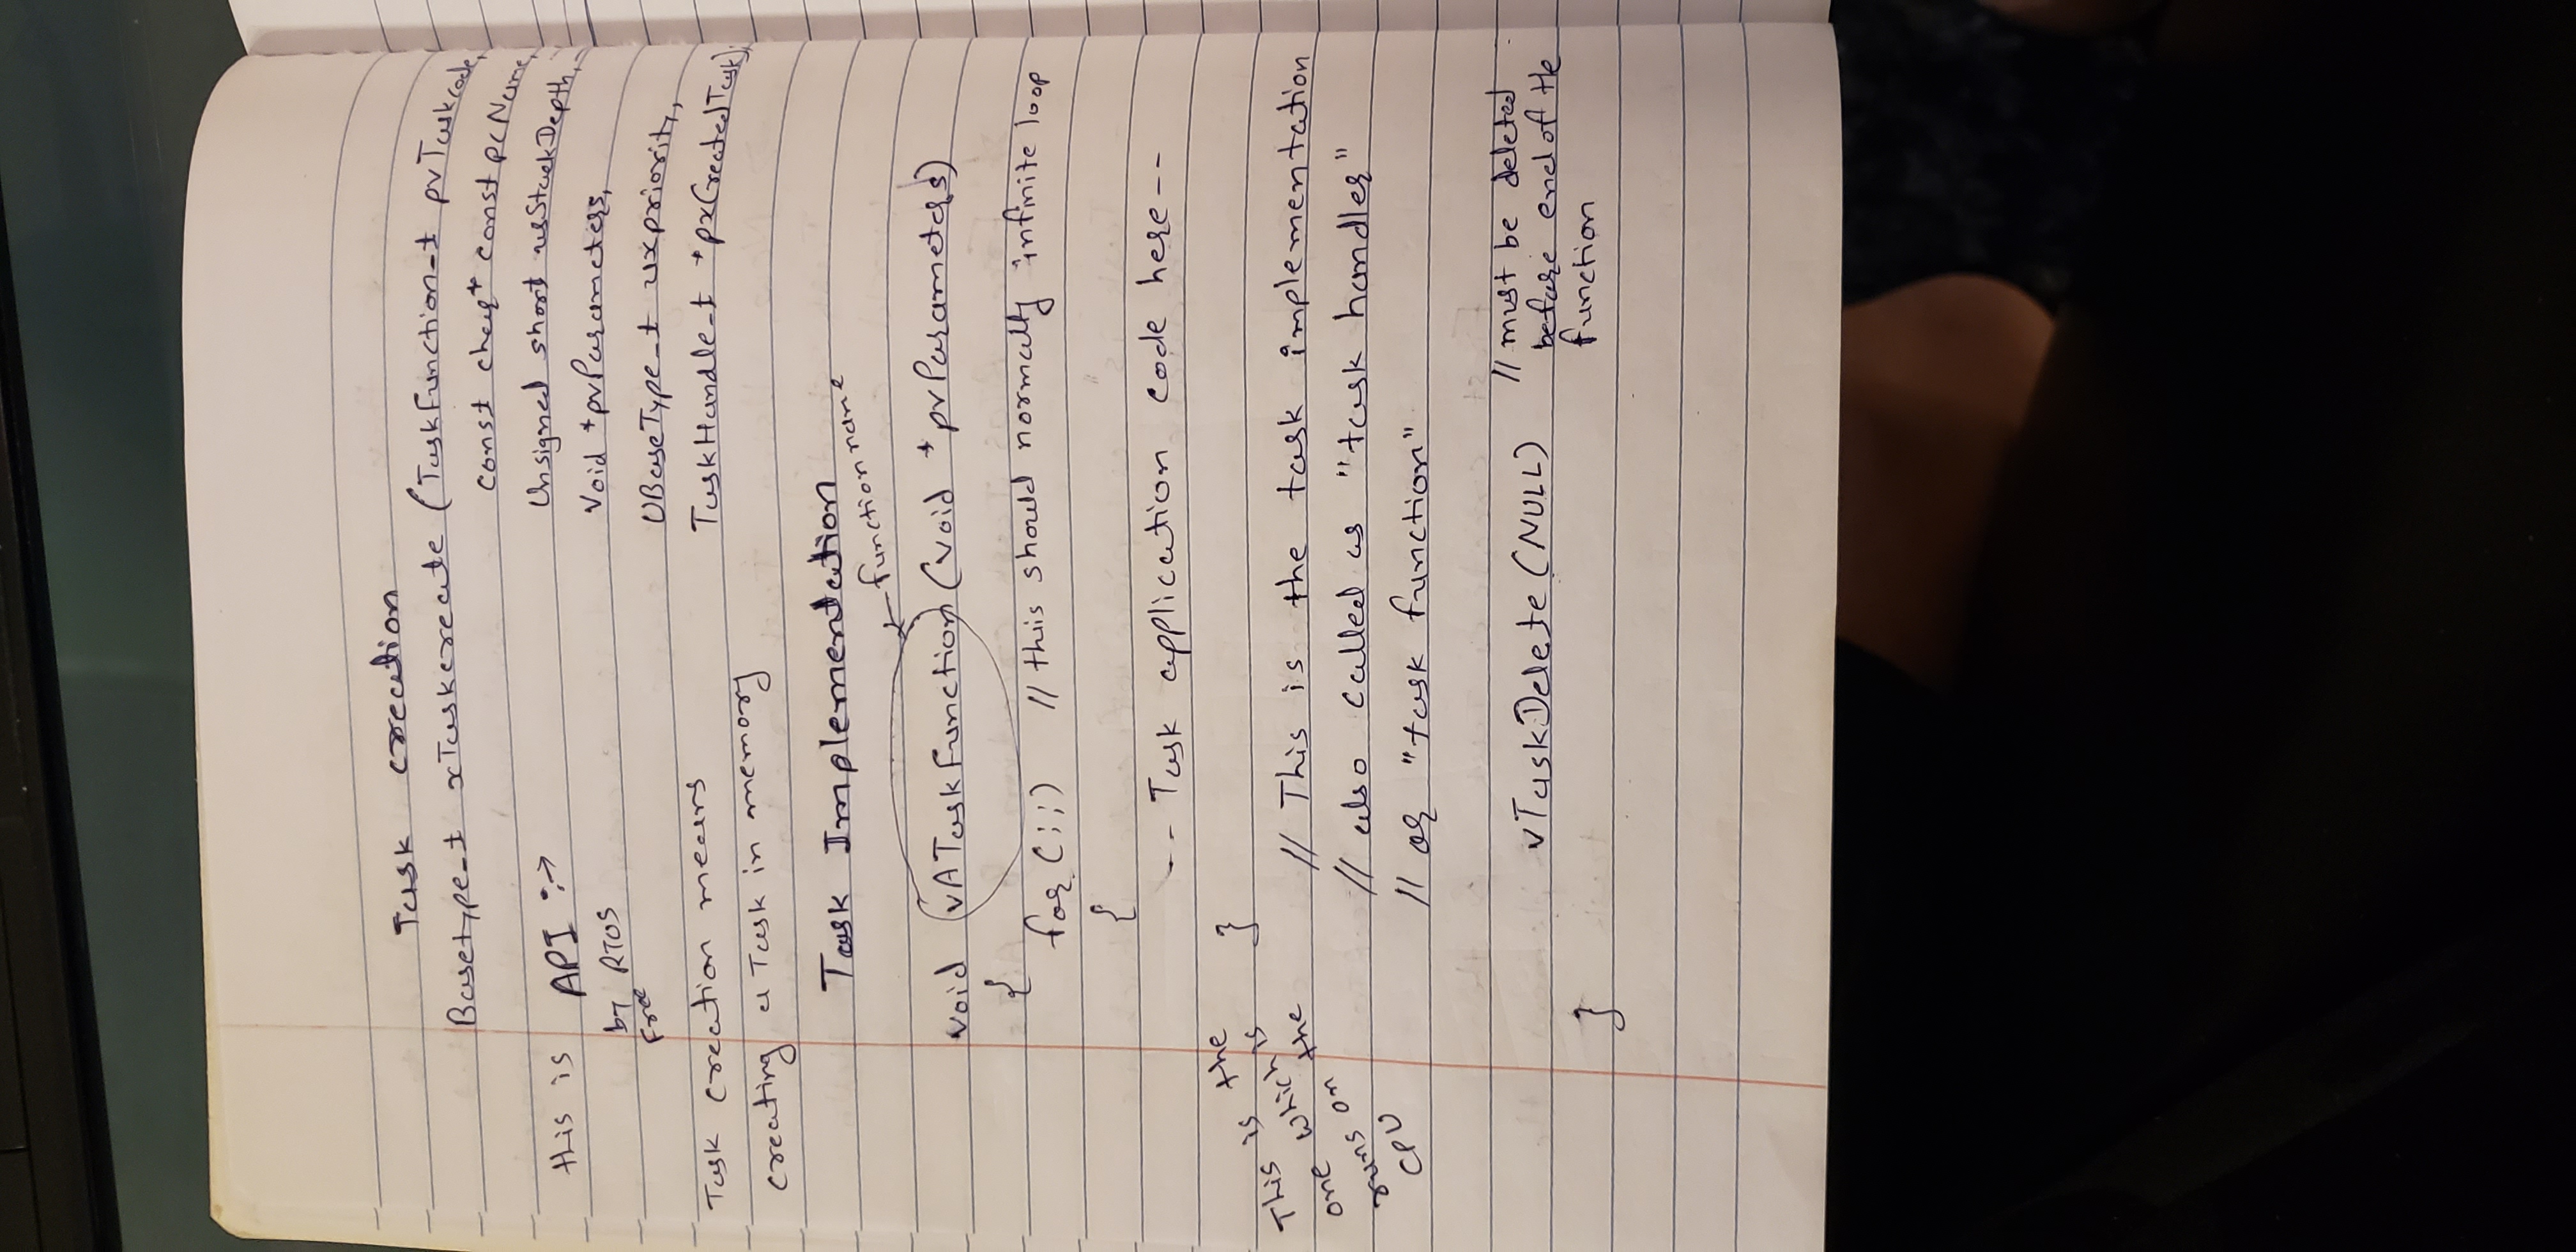 Task creation
Basetype_t xTaskcreate (TaskFunction_t pvTaskcode,
const char* const pcName,
this is API :->
Unsigned short usStackDepth,
by RTOS
Free
Void *pvParameters,
UBaseType_t uxpriority,
Task creation means
TaskHandle_t *pxCreatedTask);
creating a Task in memory
Task Implementation
function name
void vATaskFunction (void *pvParameters)
{
for (;;) // this should normally infinite loop
{
-- Task application code here --
}
This is the
one which is
runs on the
CPU
// This is the task implementation
// also called as "task handler"
// or "task function"
vTaskDelete (NULL) // must be deleted
before end of the
function
}